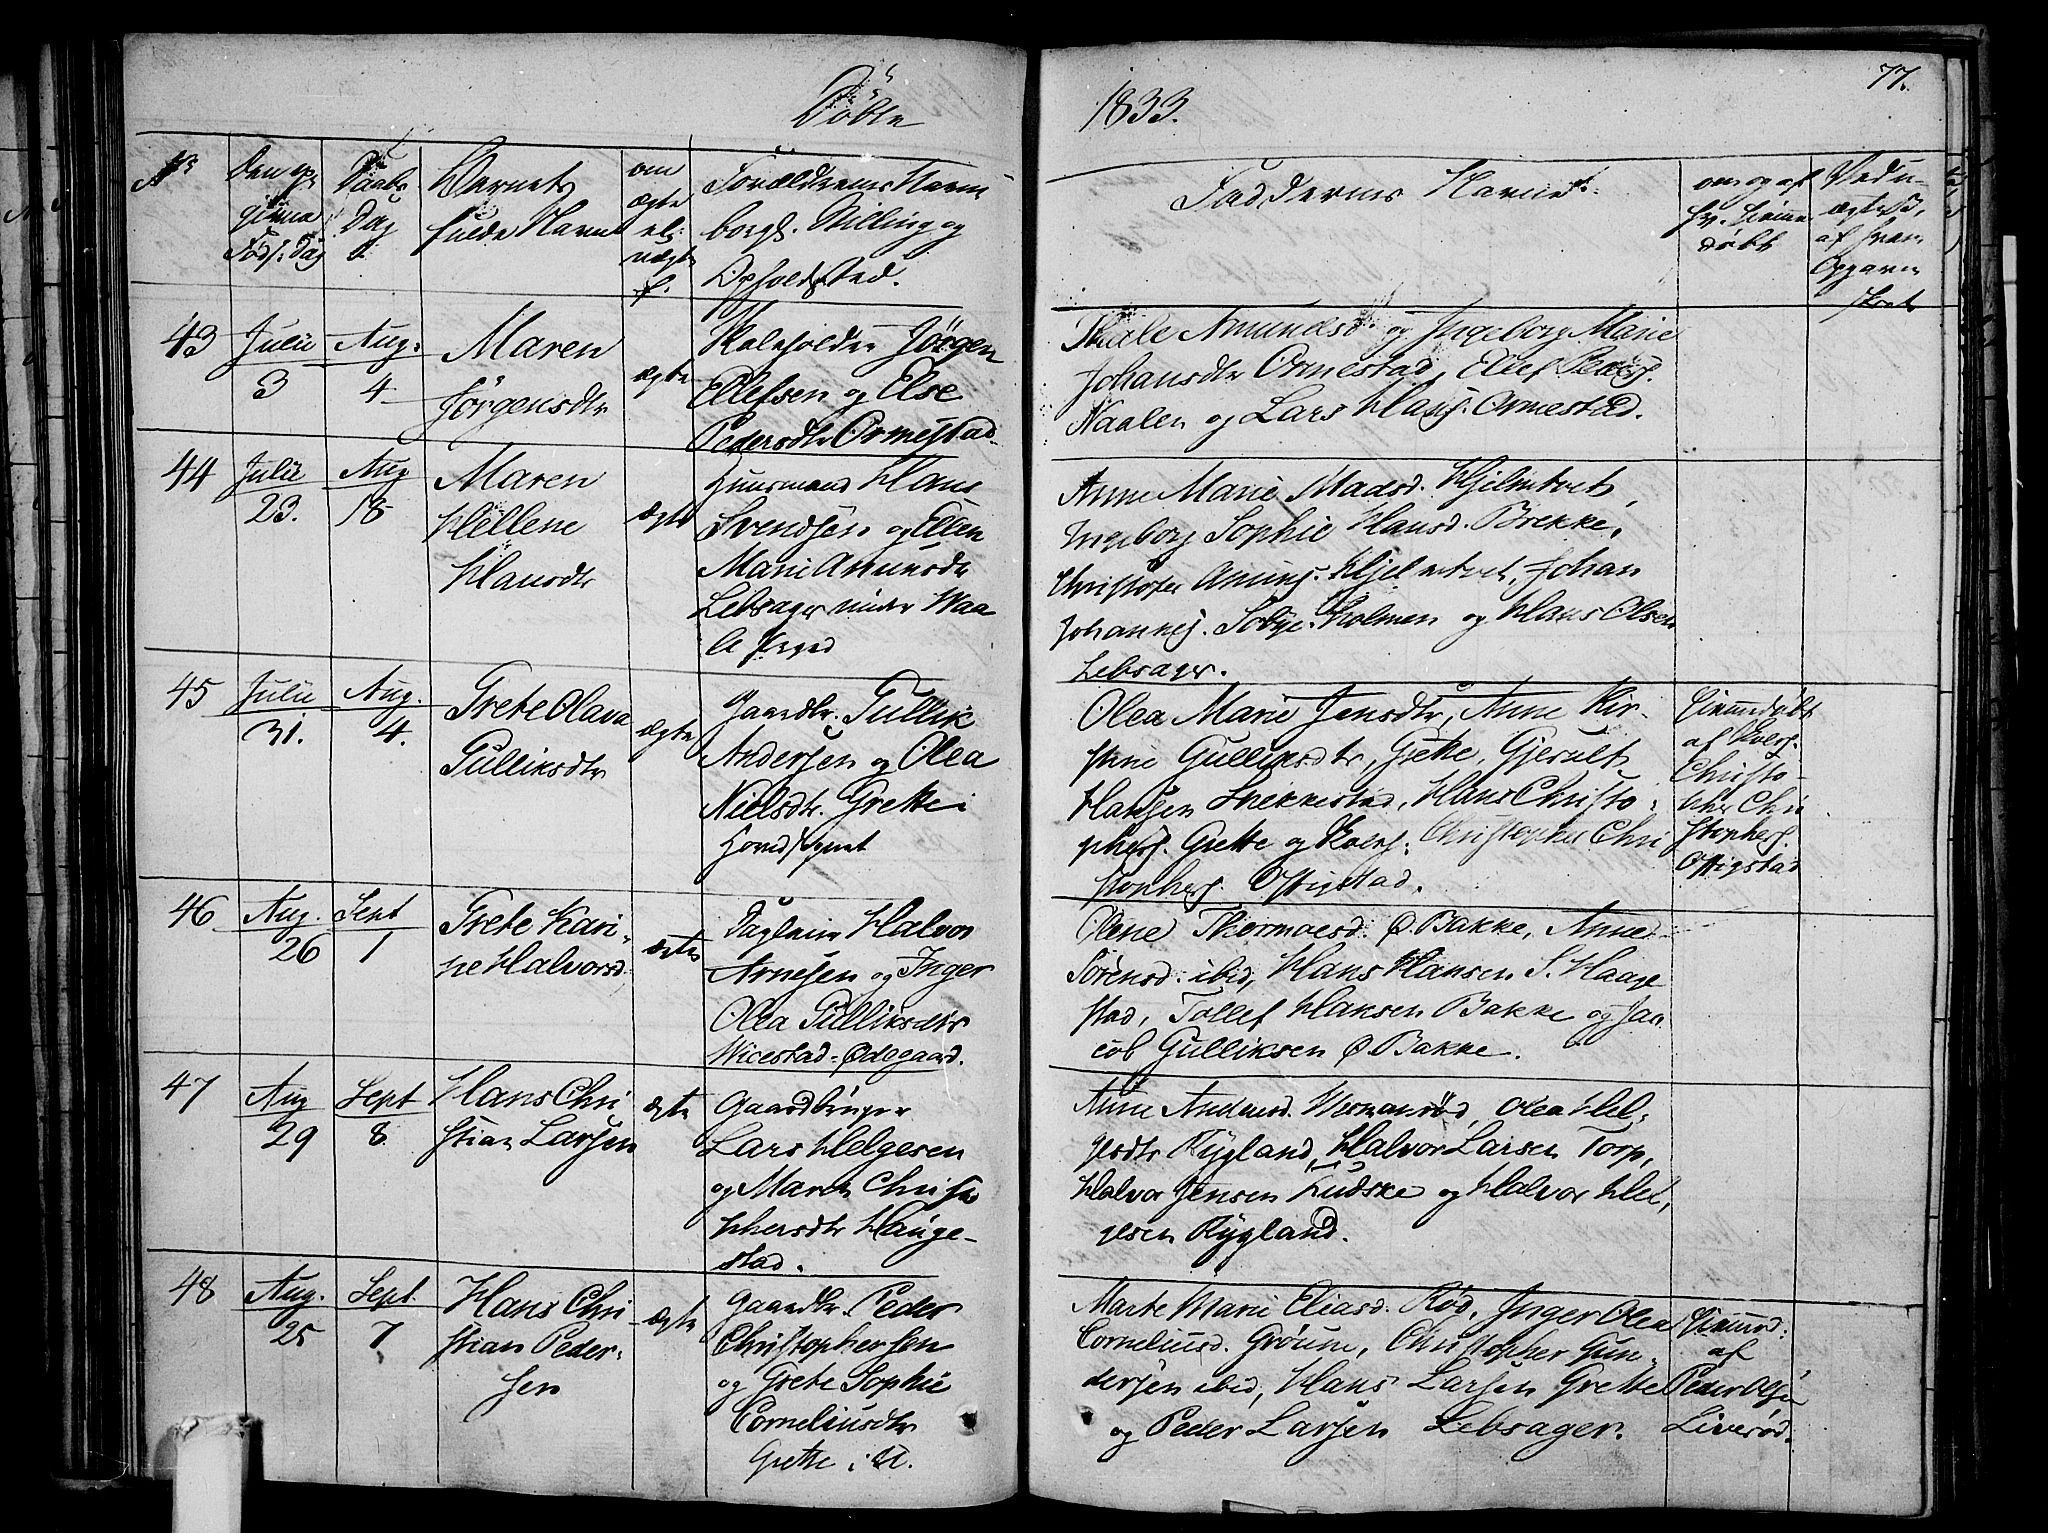 77.
Døbte
1833.
No
Den op-
givne
Føds: Dag
Daabs
Dag
Barnets
fulde Navn
om
ægte
el:
uægte
f.
Forældrenes Navn
borgl. Stilling og
Opholdssted.
Faddernes Navne.
om og af
hv. hiemme
døbt
Ved u-
ægte B.
af hvem
Opgaven
skeet
43
Julii
3
Aug.
4
Maren
Jørgensdtr
ægte
Jørgen
Ellefsen og Else
Pedersdtr Ormestad
Amundsd. og Ingeborg Marie
Johansdtr Ormestad, Ellef Peders.
Naalen og Lars Hans. Ormestad.
44
Julii
23.
Aug
18
Maren
Hellene
Hansdtr
ægte
Huusmand Hans
Svendsen og Ellen
Marie Amundsdtr
Lebsager under Waa
le
Anne Marie Madsd. Hjelmtvet,
Ingeborg Sophie Hansd. Brekke,
Christofer Amuns. Hjelmtvet, Johan
Johannes. Holmen og Hans Olsen
Lebsager.
45
Julii
31.
Aug.
4.
Grete Olava
Gulliksdtr
ægte
Gaardbr. Gullik
Andersen og Olea
Nielsdtr. Grette i
Hovedsognet
Olea Marie Jensdtr, Anne Kir-
stine Gulliksdtr, Grette, Gjerult
Hansen Skikkestad, Hans Christo-
phers. Grette og Christopher Chri
stophers. Oftigstad.
Hjemmedøbt
af
Christo-
pher Chri
stophers.
Oftigstad
46
Aug.
26
Sept
1
Grete Kari-
ne Halvorsd.
ægte
Halvor
Arnesen og Inger
Olea Gulliksdtr
Wicestad-Ødegaard.
Olene Thormoesd. Ø. Bakke, Anne
Sørensd. ibid, Hans Hansen S. Hauge
stad, Tollef Hansen Bakke og Ja-
cob Gulliksen Ø. Bakke.
47
Aug
29
Sept
8
Hans Chri
stian Larsen
ægte
Gaardbruger
Lars Helgesen
og Maren Christo
phersdtr Hauge-
stad.
Anne Andersd. Hermansrød, Olea Hel-
gesdtr Rygland, Halvor Larsen Torp,
Halvor Jensen Ludske og Halvor Hel-
gesen Rygland.
48
Aug.
25
Sept.
7
Hans Chri
stian Peder-
sen
ægte
Gaardbr. Peder
Christophersen
og Grete Sophie
Corneliusdtr
Grette i A.
Marte Marie Eliasd. Rød, Inger Olea
Corneliusd. Grøume, Christopher Gun-
dersen ibid, Hans Larsen Grette
og Peder Larsen Lebsager.
Hjemmed:
af
Peder Olsen
Liverød.